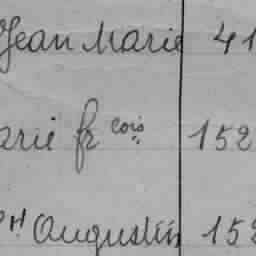 Jean Marie 41
arie fr cois 152
H Augustin 152